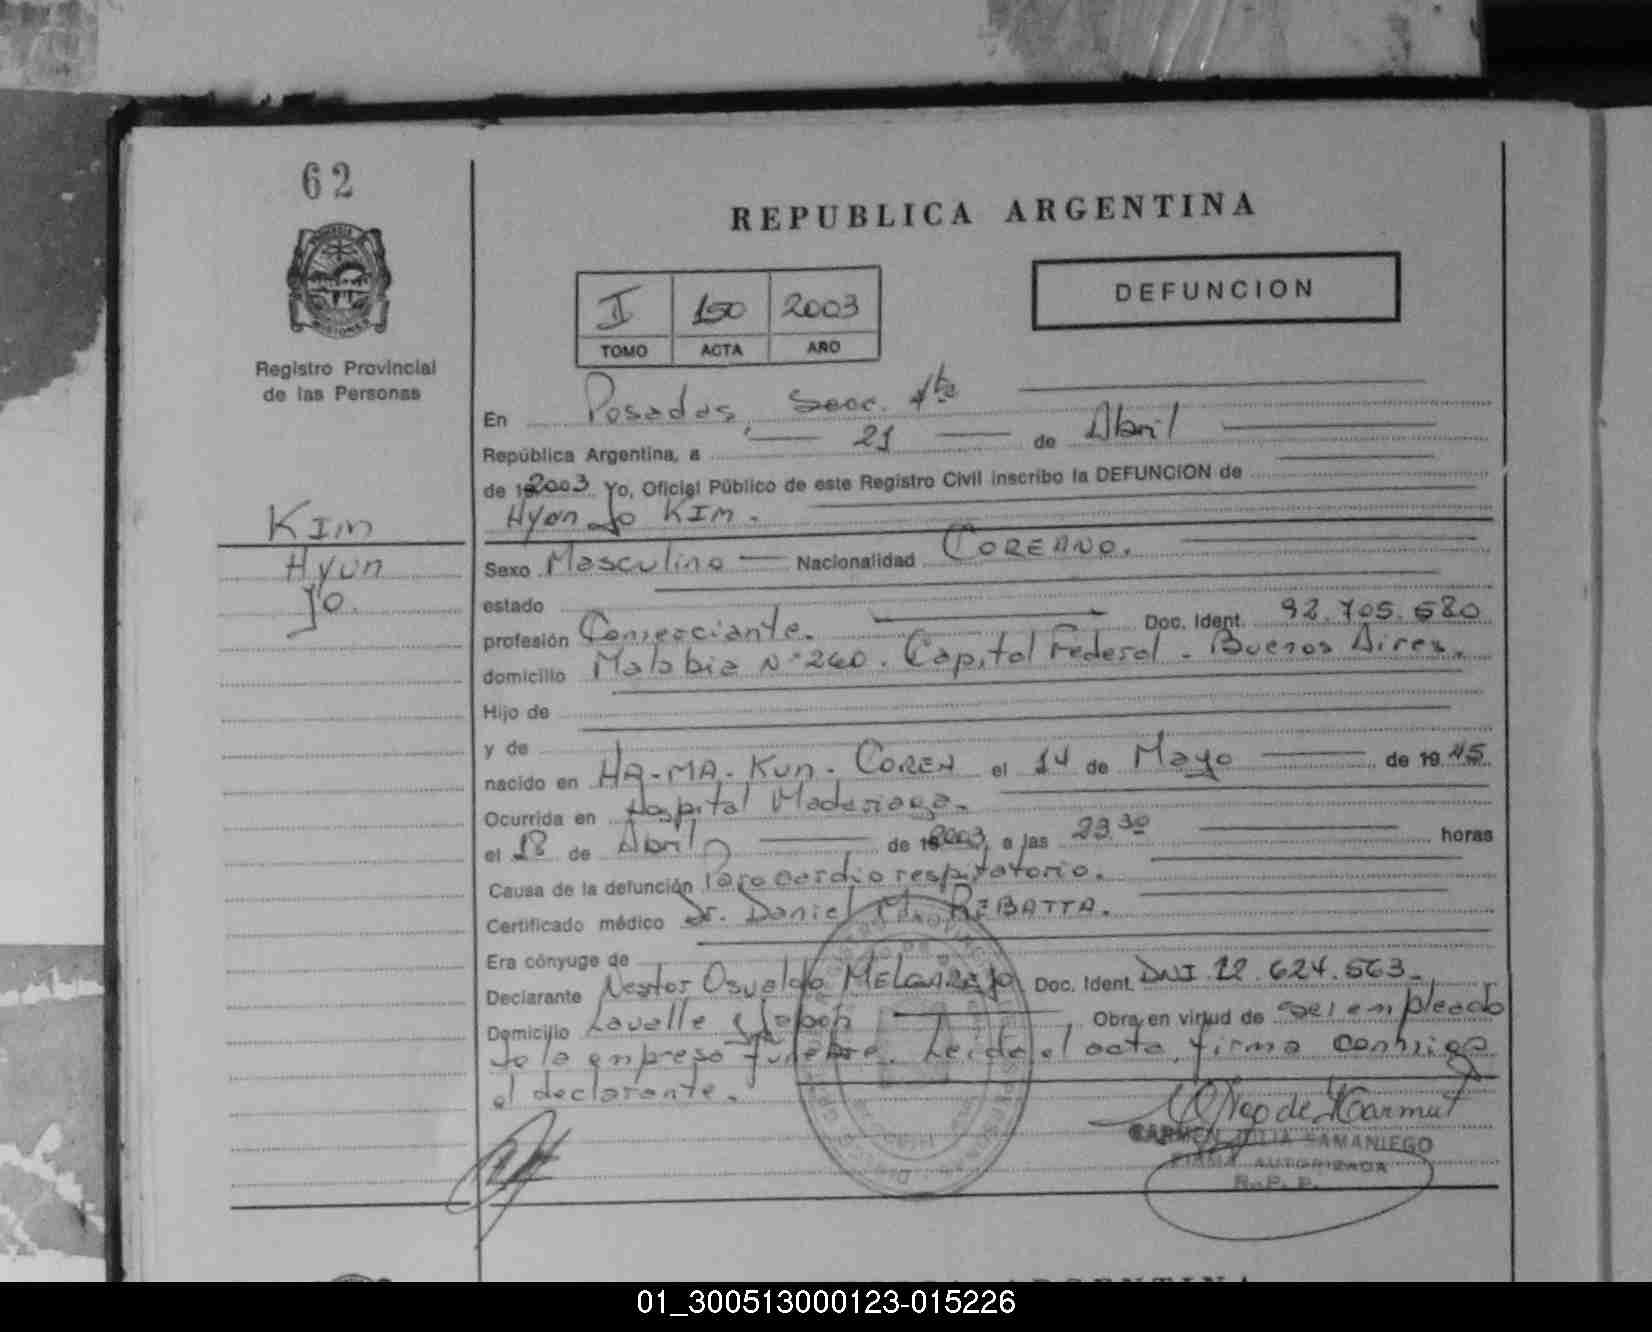 62
REPUBLICA ARGENTINA
DEFUNCION
I 150 2003
TOMO ACTA AÑO
Registro Provincial
de las Personas
En Posadas, Secc. 1ra
República Argentina, a 21 de Abril
de 192003 Yo, Oficial Público de este Registro Civil inscribo la DEFUNCION de
Hyon Jo KIM.
KIM
Hyun
Jo.
Sexo Masculino Nacionalidad COREANO.
estado
profesión Comerciante. Doc. Ident. 92.705.680
domicilio Malabia N° 240. Capital Federal - Buenos Aires.
Hijo de
y de
nacido en HA-MA-Kun. COREA el 14 de Mayo de 1945
Ocurrida en Hospital Madariaga.
el 18 de Abril de 192003, a las 23:30 horas
Causa de la defunción Paro cardio respiratorio.
Certificado médico Dr. Daniel M. REBATTA.
Era cónyuge de
Declarante Nestor Osvaldo MELGAREJO Doc. Ident. DNI 12.624.563.
Domicilio Lavalle y Obra en virtud de ser empleado
de la empresa funebre. Leida el acta, firma conmigo
el declarante.
CARMEN JULIA SAMANIEGO
FIRMA AUTORIZADA
R. P. P.
ARGENTINA
01_300513000123-015226